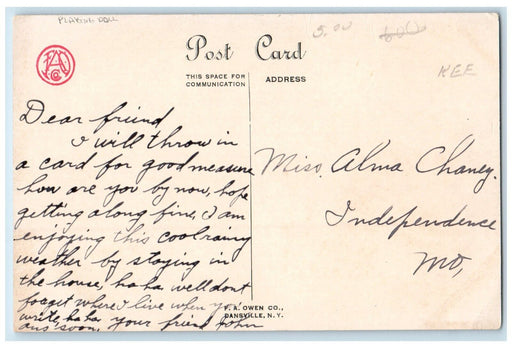 PLAYING DOLL
5.00
600
KEE
Post Card
THIS SPACE FOR
COMMUNICATION
ADDRESS
Dear friend
I will throw in
a card for good measure
how are you by now, hope
getting along fine, I am
enjoying this cool rainy
weather by staying in
the house, ha ha well dont
forget where I live when you
write ha ha
ans soon, your friend John
Miss, Alma Chaney.
Independence
Mo,
F. A. OWEN CO.,
DANSVILLE, N. Y.